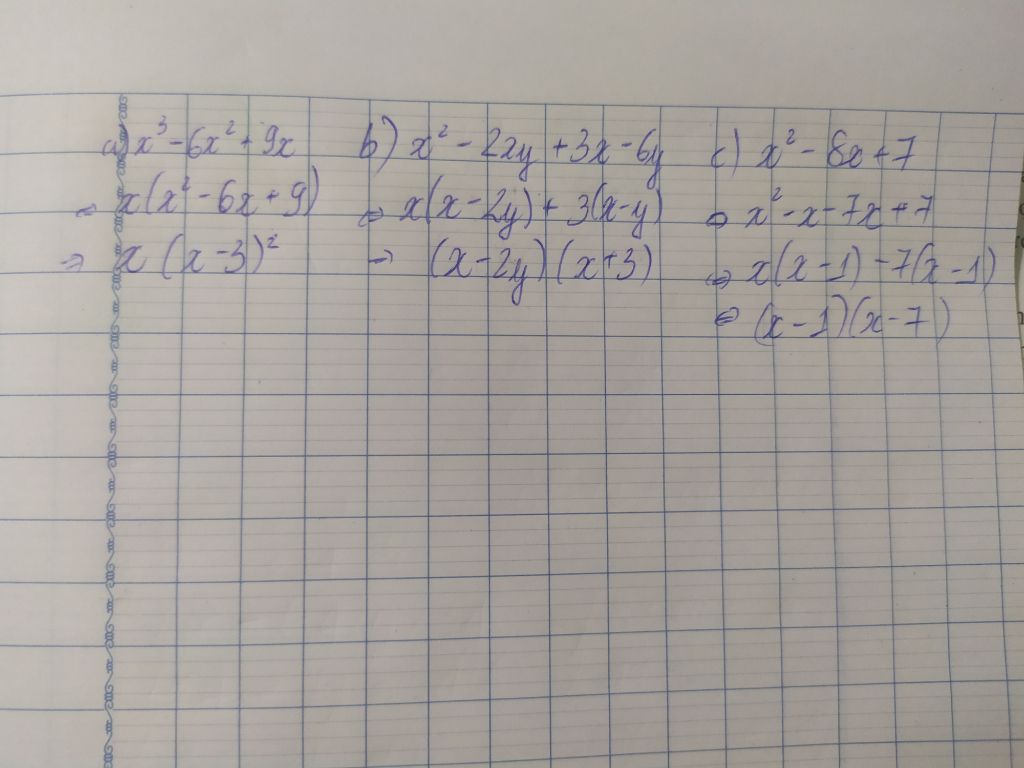 a) x³ - 6x² + 9x
⇔ x(x² - 6x + 9)
⇒ x (x - 3)²
b) x² - 2xy + 3x - 6y
⇔ x(x - 2y) + 3(x - y)
→ (x - 2y) (x + 3)
c) x² - 8x + 7
⇔ x² - x - 7x + 7
⇔ x(x - 1) - 7(x - 1)
⇔ (x - 1)(x - 7)